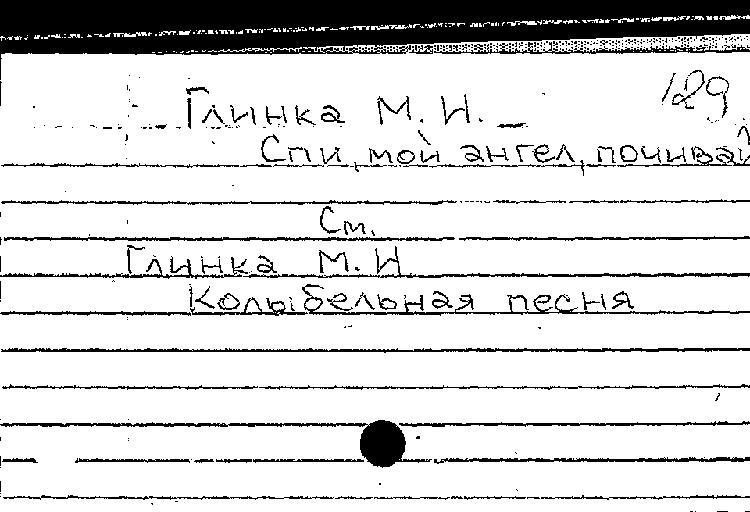 129
Глинка М. И. _
Спи, мой ангел, почивай
См.
Глинка М. И
Колыбельная песня